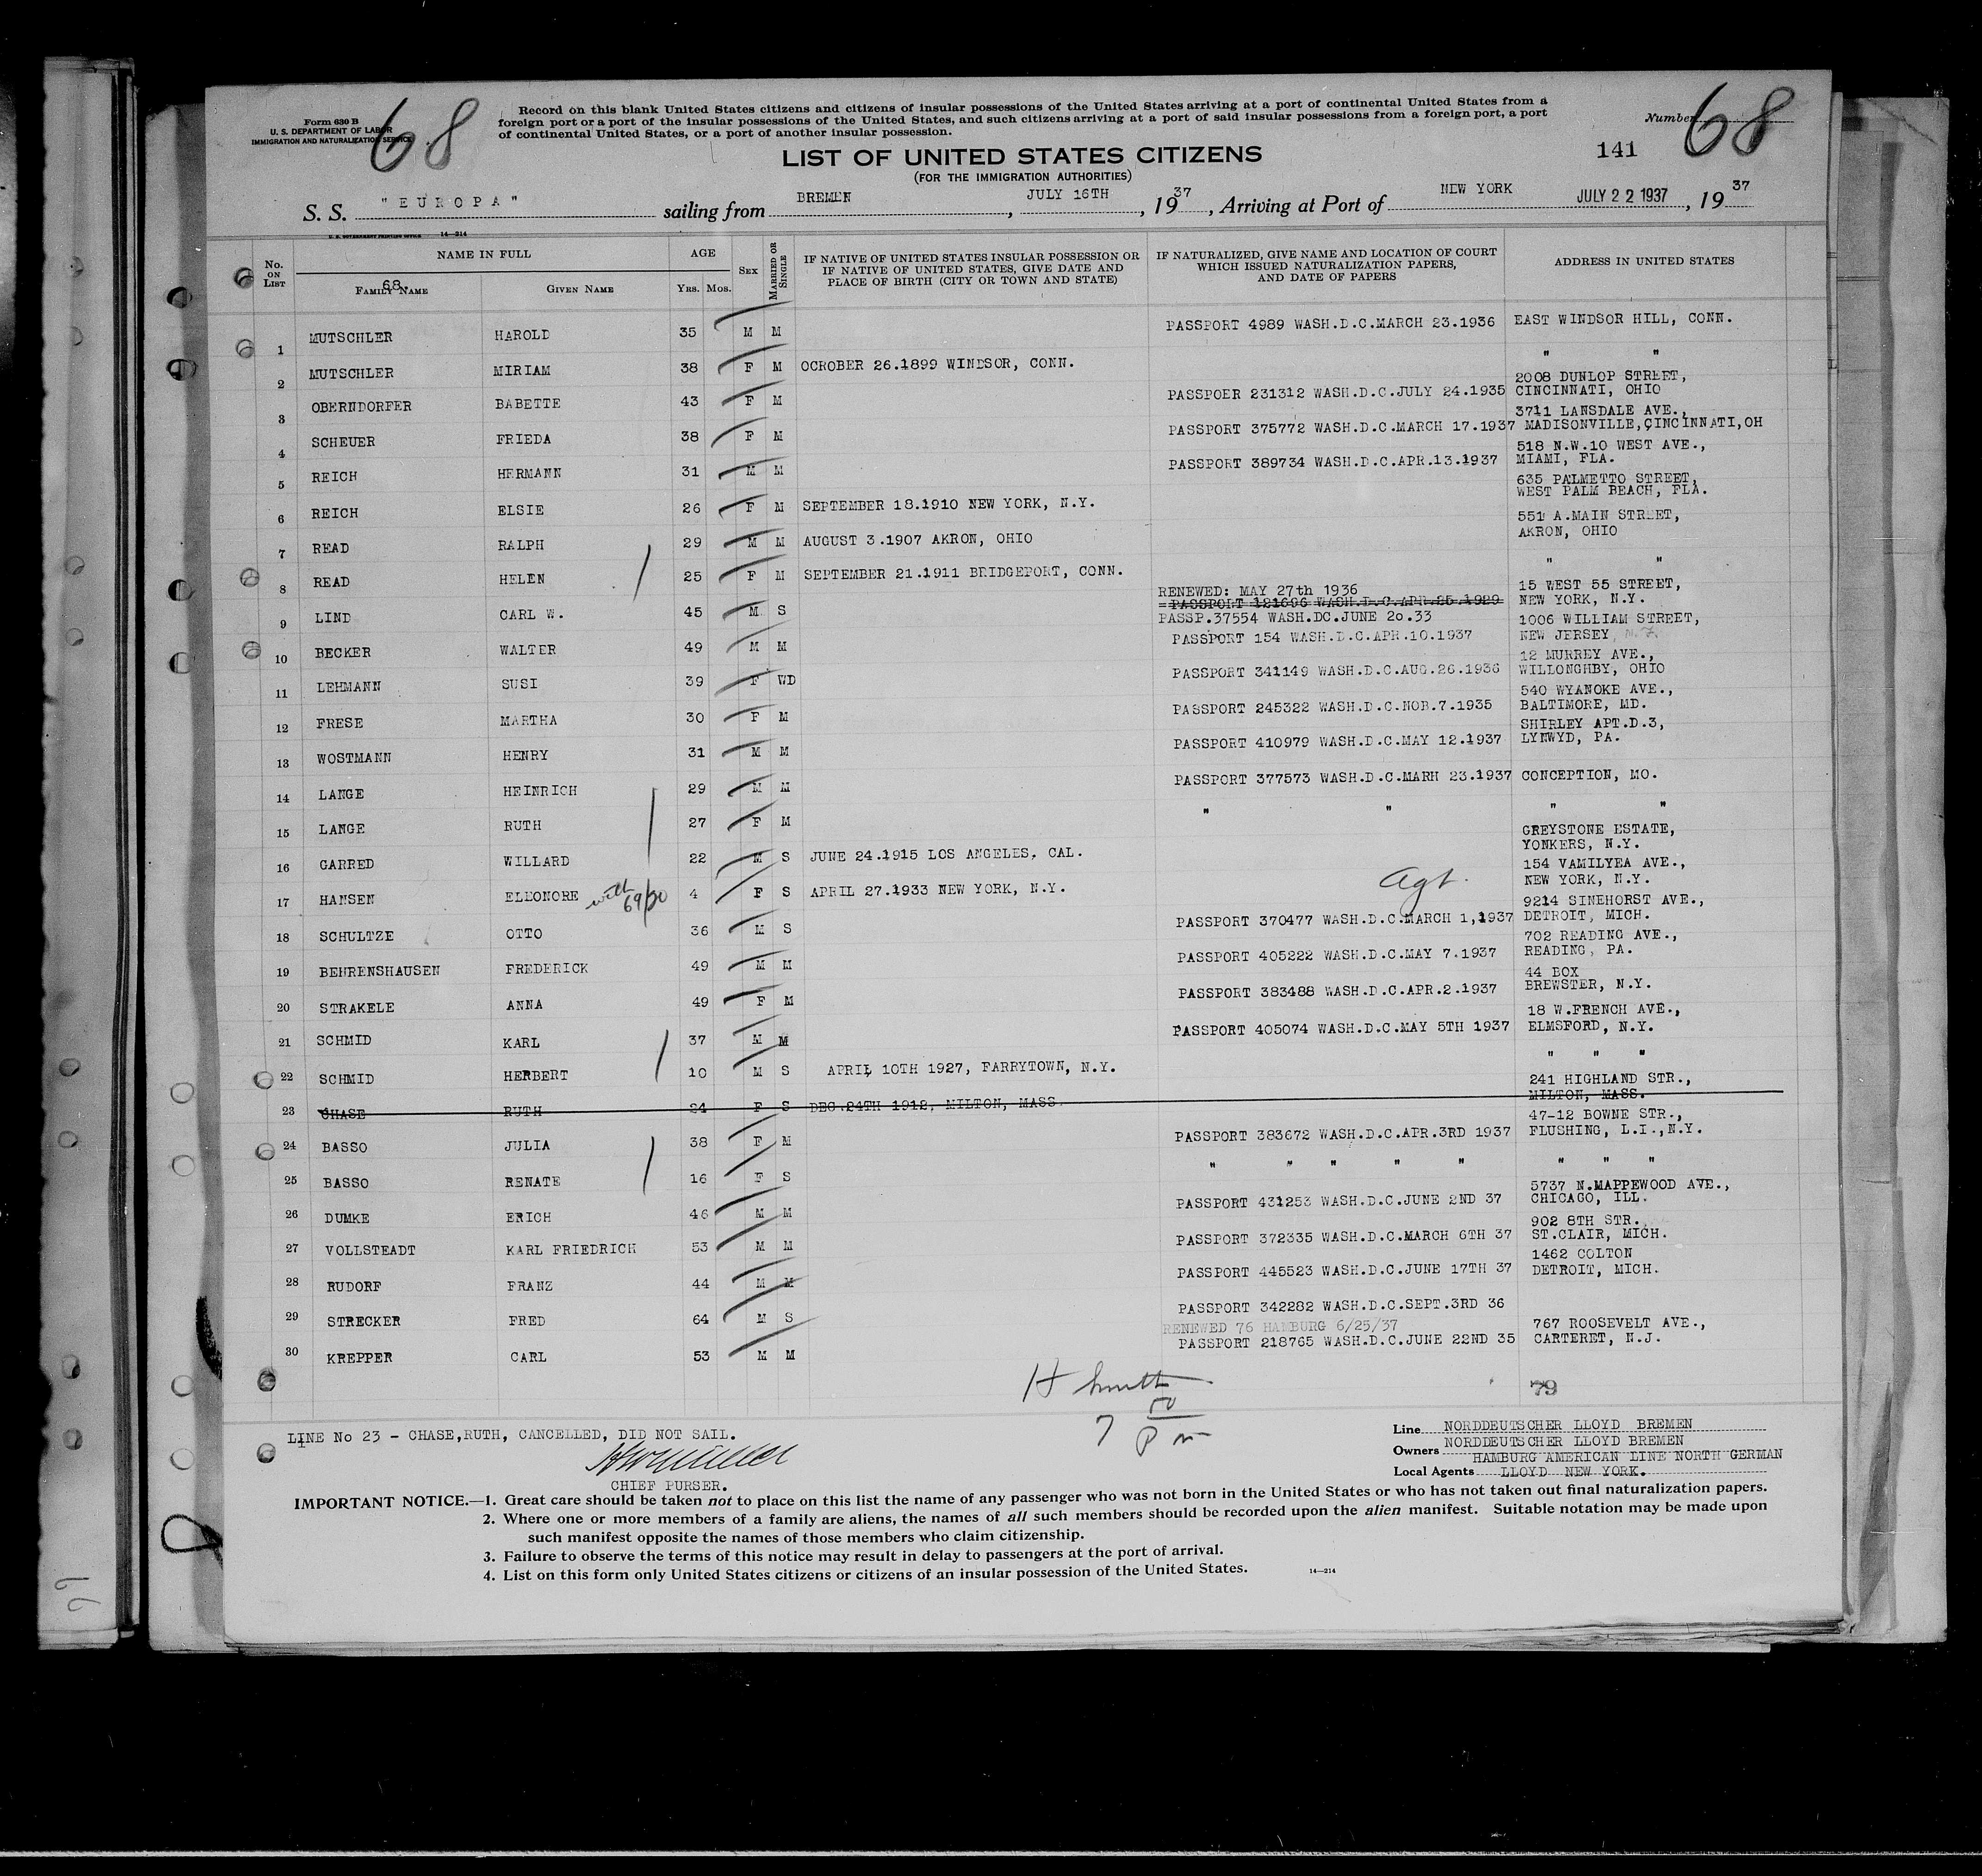 Form 630 B
U. S. DEPARTMENT OF LABOR
IMMIGRATION AND NATURALIZATION SERVICE
68
Record on this blank United States citizens and citizens of insular possessions of the United States arriving at a port of continental United States from a
foreign port or a port of the insular possessions of the United States, and such citizens arriving at a port of said insular possessions from a foreign port, a port
of continental United States, or a port of another insular possession.
Number 68
141
LIST OF UNITED STATES CITIZENS
(FOR THE IMMIGRATION AUTHORITIES)
S. S. "EUROPA" sailing from BREMEN, JULY 16TH, 1937, Arriving at Port of NEW YORK JULY 22 1937, 1937
U. S. GOVERNMENT PRINTING OFFICE 14—214
No. ON LIST NAME IN FULL AGE SEX MARRIED OR SINGLE IF NATIVE OF UNITED STATES INSULAR POSSESSION OR IF NATIVE OF UNITED STATES, GIVE DATE AND PLACE OF BIRTH (CITY OR TOWN AND STATE) IF NATURALIZED, GIVE NAME AND LOCATION OF COURT WHICH ISSUED NATURALIZATION PAPERS, AND DATE OF PAPERS ADDRESS IN UNITED STATES
68. FAMILY NAME GIVEN NAME YRS. MOS.
1 MUTSCHLER HAROLD 35 M M PASSPORT 4989 WASH.D.C.MARCH 23.1936 EAST WINDSOR HILL, CONN.
2 MUTSCHLER MIRIAM 38 F M OCROBER 26.1899 WINDSOR, CONN. " "
3 OBERNDORFER BABETTE 43 F M PASSPOER 231312 WASH.D.C.JULY 24.1935 2008 DUNLOP STREET, CINCINNATI, OHIO
4 SCHEUER FRIEDA 38 F M PASSPORT 375772 WASH.D.C.MARCH 17.1937 3711 LANSDALE AVE., MADISONVILLE,CINCINNATI,OH
5 REICH HERMANN 31 M M PASSPORT 389734 WASH.D.C.APR.13.1937 518 N.W.10 WEST AVE., MIAMI, FLA.
6 REICH ELSIE 26 F M SEPTEMBER 18.1910 NEW YORK, N.Y. 635 PALMETTO STREET, WEST PALM BEACH, FLA.
7 READ RALPH 29 M M AUGUST 3.1907 AKRON, OHIO 551 A.MAIN STREET, AKRON, OHIO
8 READ HELEN 25 F M SEPTEMBER 21.1911 BRIDGEPORT, CONN. " "
9 LIND CARL W. 45 M S RENEWED: MAY 27th 1936 PASSPORT 121696 WASH.D.C.APR.25.1929 PASSP.37554 WASH.DC.JUNE 2o.33 15 WEST 55 STREET, NEW YORK, N.Y.
10 BECKER WALTER 49 M M PASSPORT 154 WASH.D.C.APR.10.1937 1006 WILLIAM STREET, NEW JERSEY
11 LEHMANN SUSI 39 F WD PASSPORT 341149 WASH.D.C.AUG.26.1936 12 MURREY AVE., WILLONGHBY, OHIO
12 FRESE MARTHA 30 F M PASSPORT 245322 WASH.D.C.NOB.7.1935 540 WYANOKE AVE., BALTIMORE, MD.
13 WOSTMANN HENRY 31 M M PASSPORT 410979 WASH.D.C.MAY 12.1937 SHIRLEY APT.D.3, LYNWYD, PA.
14 LANGE HEINRICH 29 M M PASSPORT 377573 WASH.D.C.MARH 23.1937 CONCEPTION, MO.
15 LANGE RUTH 27 F M " " " "
16 GARRED WILLARD 22 M S JUNE 24.1915 LOS ANGELES, CAL. GREYSTONE ESTATE, YONKERS, N.Y.
17 HANSEN ELEONORE with 69/30 4 F S APRIL 27.1933 NEW YORK, N.Y. Agt. 154 VAMILYEA AVE., NEW YORK, N.Y.
18 SCHULTZE OTTO 36 M S PASSPORT 370477 WASH.D.C.MARCH 1,1937 9214 SINEHORST AVE., DETROIT, MICH.
19 BEHRENSHAUSEN FREDERICK 49 M M PASSPORT 405222 WASH.D.C.MAY 7.1937 702 READING AVE., READING, PA.
20 STRAKELE ANNA 49 F M PASSPORT 383488 WASH.D.C.APR.2.1937 44 BOX BREWSTER, N.Y.
21 SCHMID KARL 37 M M PASSPORT 405074 WASH.D.C.MAY 5TH 1937 18 W.FRENCH AVE., ELMSFORD, N.Y.
22 SCHMID HERBERT 10 M S APRIL 10TH 1927, FARRYTOWN, N.Y. " " "
23 CHASE RUTH 24 F S DEC.24TH 1912, MILTON, MASS. 241 HIGHLAND STR., MILTON, MASS.
24 BASSO JULIA 38 F M PASSPORT 383672 WASH.D.C.APR.3RD 1937 47-12 BOWNE STR., FLUSHING, L.I.,N.Y.
25 BASSO RENATE 16 F S " " " " " " " "
26 DUMKE ERICH 46 M M PASSPORT 431253 WASH.D.C.JUNE 2ND 37 5737 N.MAPPEWOOD AVE., CHICAGO, ILL.
27 VOLLSTEADT KARL FRIEDRICH 53 M M PASSPORT 372335 WASH.D.C.MARCH 6TH 37 902 8TH STR. ST.CLAIR, MICH.
28 RUDORF FRANZ 44 M M PASSPORT 445523 WASH.D.C.JUNE 17TH 37 1462 COLTON DETROIT, MICH.
29 STRECKER FRED 64 M S PASSPORT 342282 WASH.D.C.SEPT.3RD 36
30 KREPPER CARL 53 M M RENEWED 76 HAMBURG 6/25/37 PASSPORT 218765 WASH.D.C.JUNE 22ND 35 767 ROOSEVELT AVE., CARTERET, N.J.
H Smith
7 50 Pm
79
LINE No 23 - CHASE,RUTH, CANCELLED, DID NOT SAIL.
CHIEF PURSER.
Line NORDDEUTSCHER LLOYD BREMEN
Owners NORDDEUTSCHER LLOYD BREMEN
HAMBURG AMERICAN LINE NORTH GERMAN
Local Agents LLOYD NEW YORK.
IMPORTANT NOTICE.—1. Great care should be taken not to place on this list the name of any passenger who was not born in the United States or who has not taken out final naturalization papers.
2. Where one or more members of a family are aliens, the names of all such members should be recorded upon the alien manifest. Suitable notation may be made upon
such manifest opposite the names of those members who claim citizenship.
3. Failure to observe the terms of this notice may result in delay to passengers at the port of arrival.
4. List on this form only United States citizens or citizens of an insular possession of the United States.
14—214